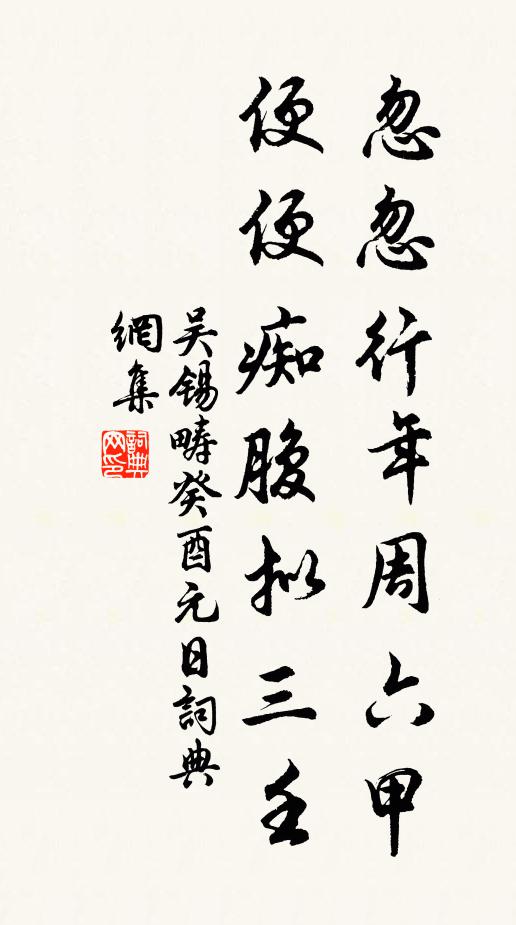 忽忽行年周六甲
便便痴腹拟三壬
吴锡畴癸酉元日詞典
網集
詞典網印